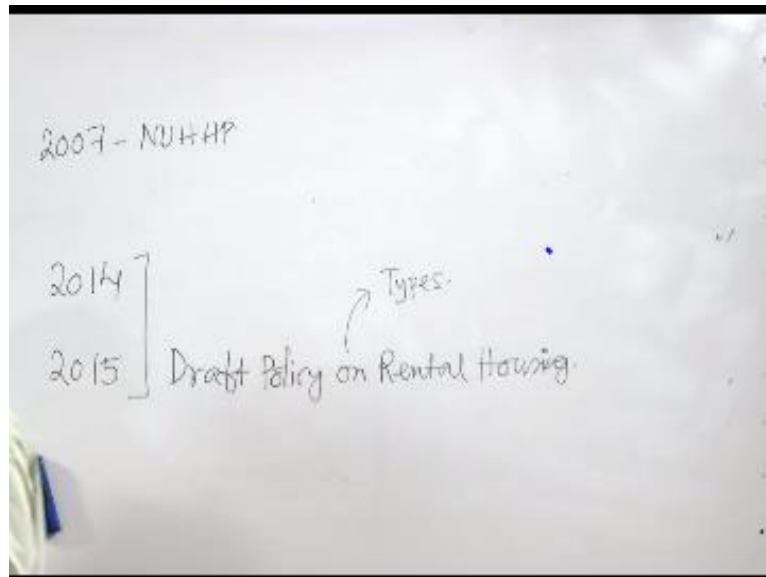 2007 - NUHHP
2014
Types.
2015 Draft Policy on Rental Housing.